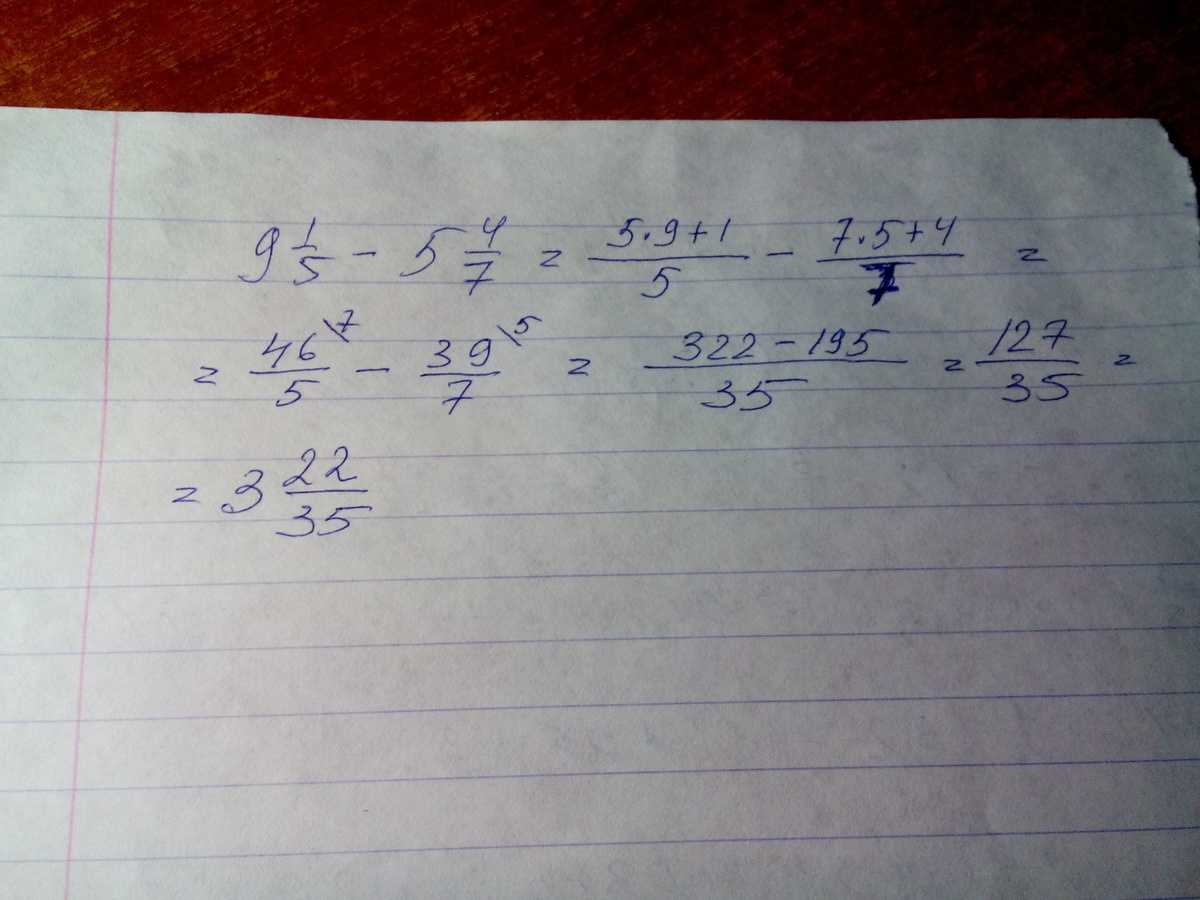 9 1/5 - 5 4/7 = (5·9+1)/5 - (7·5+4)/7 =
= 46\7/5 - 39\5/7 = (322-195)/35 = 127/35 =
= 3 22/35